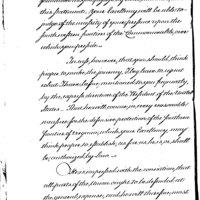 this settlement. Your Excellency will be able to
judge of the necessity of your presence upon the
southeastern frontier of the Commonwealth, over
which you preside.
In case, however, that you should think
proper to make the journey, I beg leave to repeat
what I have before mentioned to you frequently,
by the express direction of the President of the United
States. That he will concur, in every reasonable
measure for the defensive protection of the
of Virginia, which your Excellency may
think proper to establish, as far as he is, or shall
be, authorized by law.
Was impressed with the conviction, that
all parts of the Union ought to be defended at
the general expence, and he will therefore, most